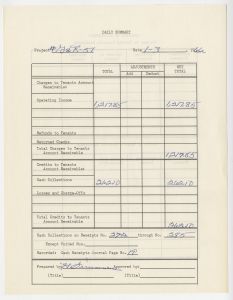 DAILY SUMMARY
Project Date 1-3
TOTAL ADJUSTMENTS NET TOTAL
Add Deduct
Charges to Tenants Account
Receivables
Operating Income 121785 121785
Refunds to Tenants
Returned Checks
Total Charges to Tenants
Account Receivable 121785
Credits to Tenants
Account Receivable
Cash Collections 26210 26210
Losses and Charge-Offs
Total Credits to Tenants
Account Receivable 26210
Cash Collections on Receipts No. through No. 285
Except Voided Nos.
Recorded: Cash Receipts Journal Page No. 19
Prepared by Approved by
(Title) (Title)